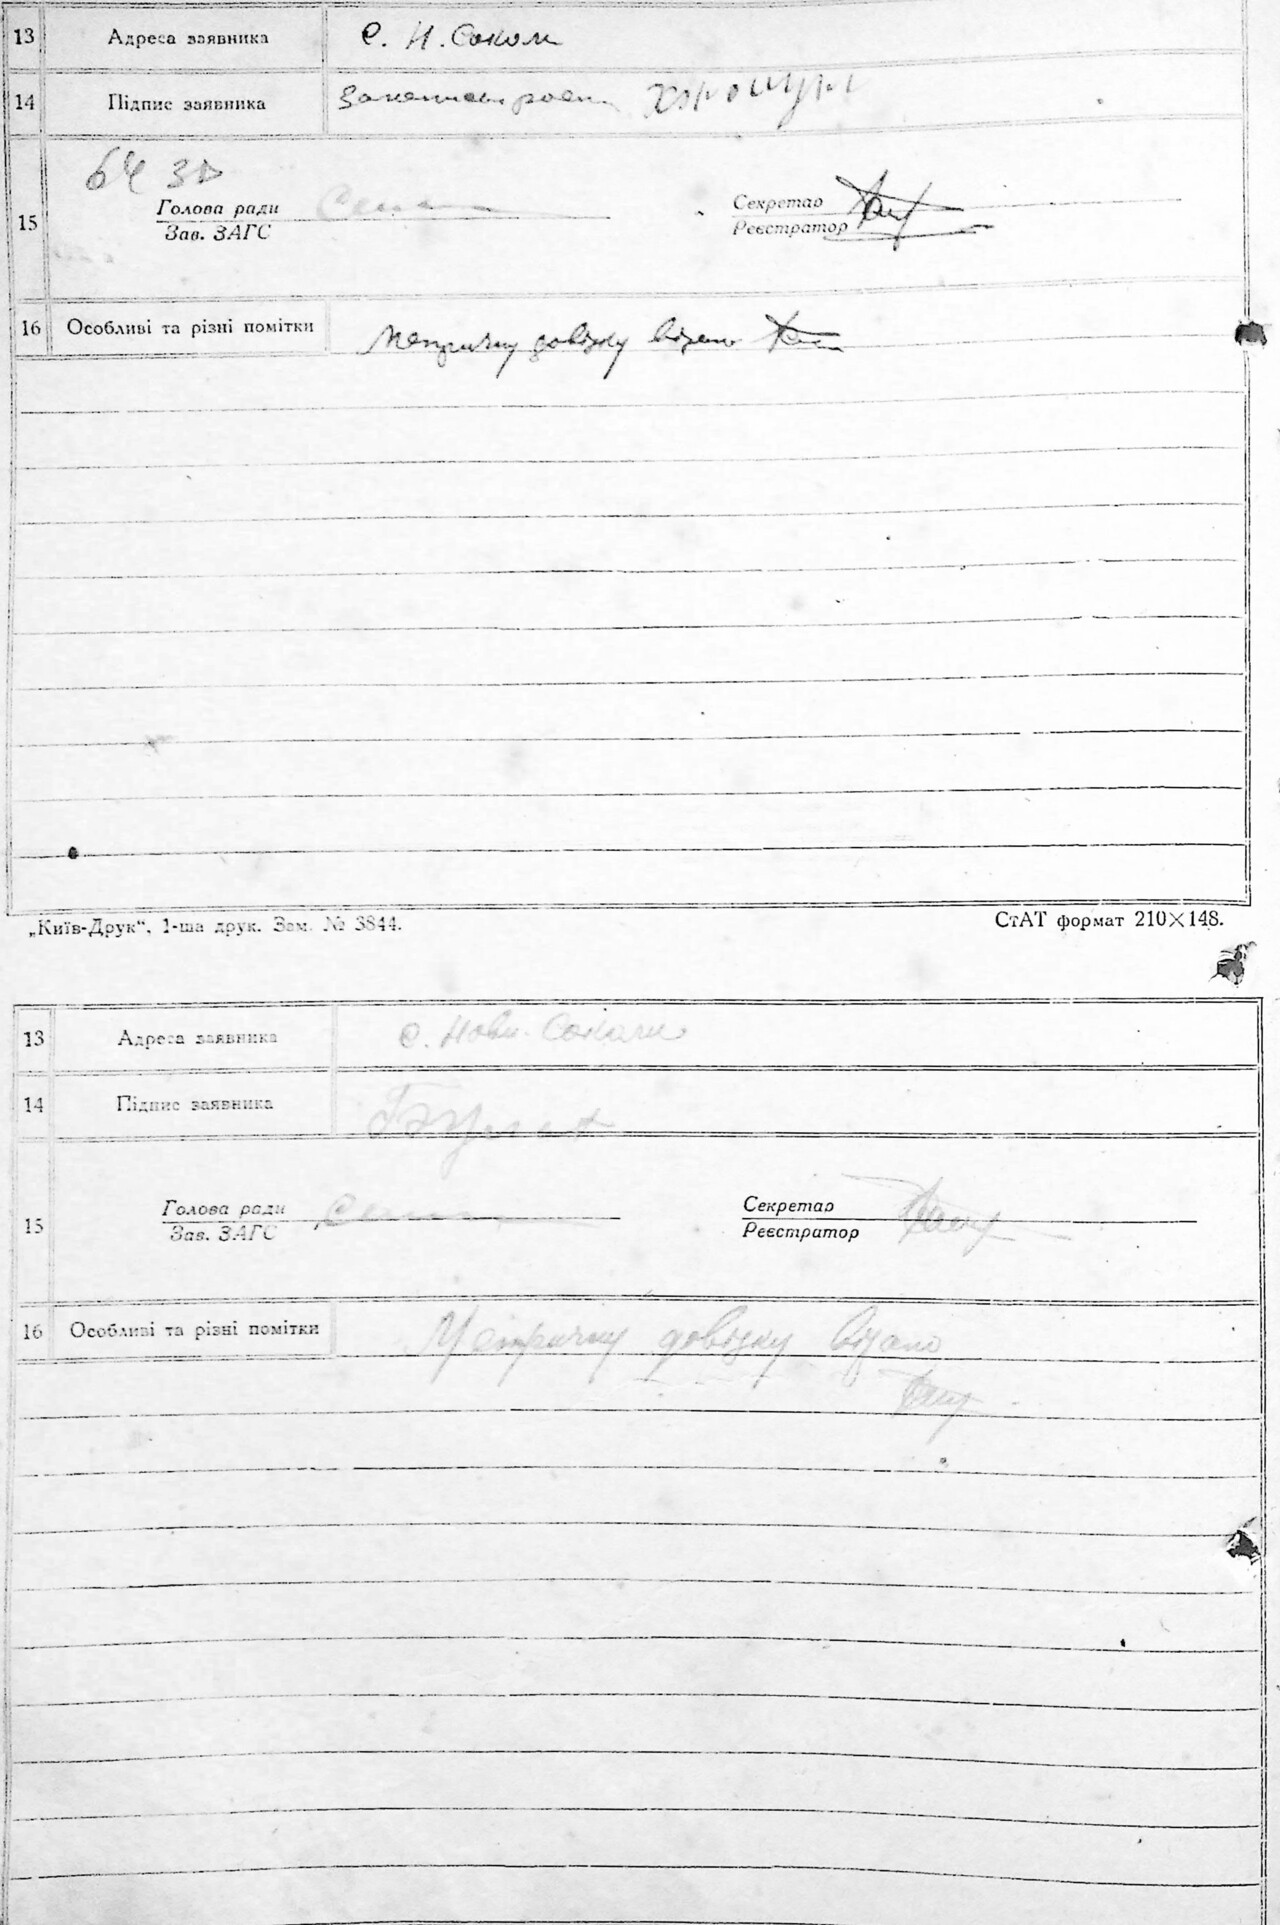 13 Адреса заявника с. Н. Соколи
14 Підпис заявника
15
Голова ради
Зав. ЗАГС
Секретар
Реєстратор
16 Особливі та різні помітки Метричну довідку видано
„Київ-Друк“, 1-ша друк. Зам. № 3844.
СтАТ формат 210×148.
13 Адреса заявника с. Нові-Соколи
14 Підпис заявника
15
Голова ради
Зав. ЗАГС
Секретар
Реєстратор
16 Особливі та різні помітки Метричну довідку видано